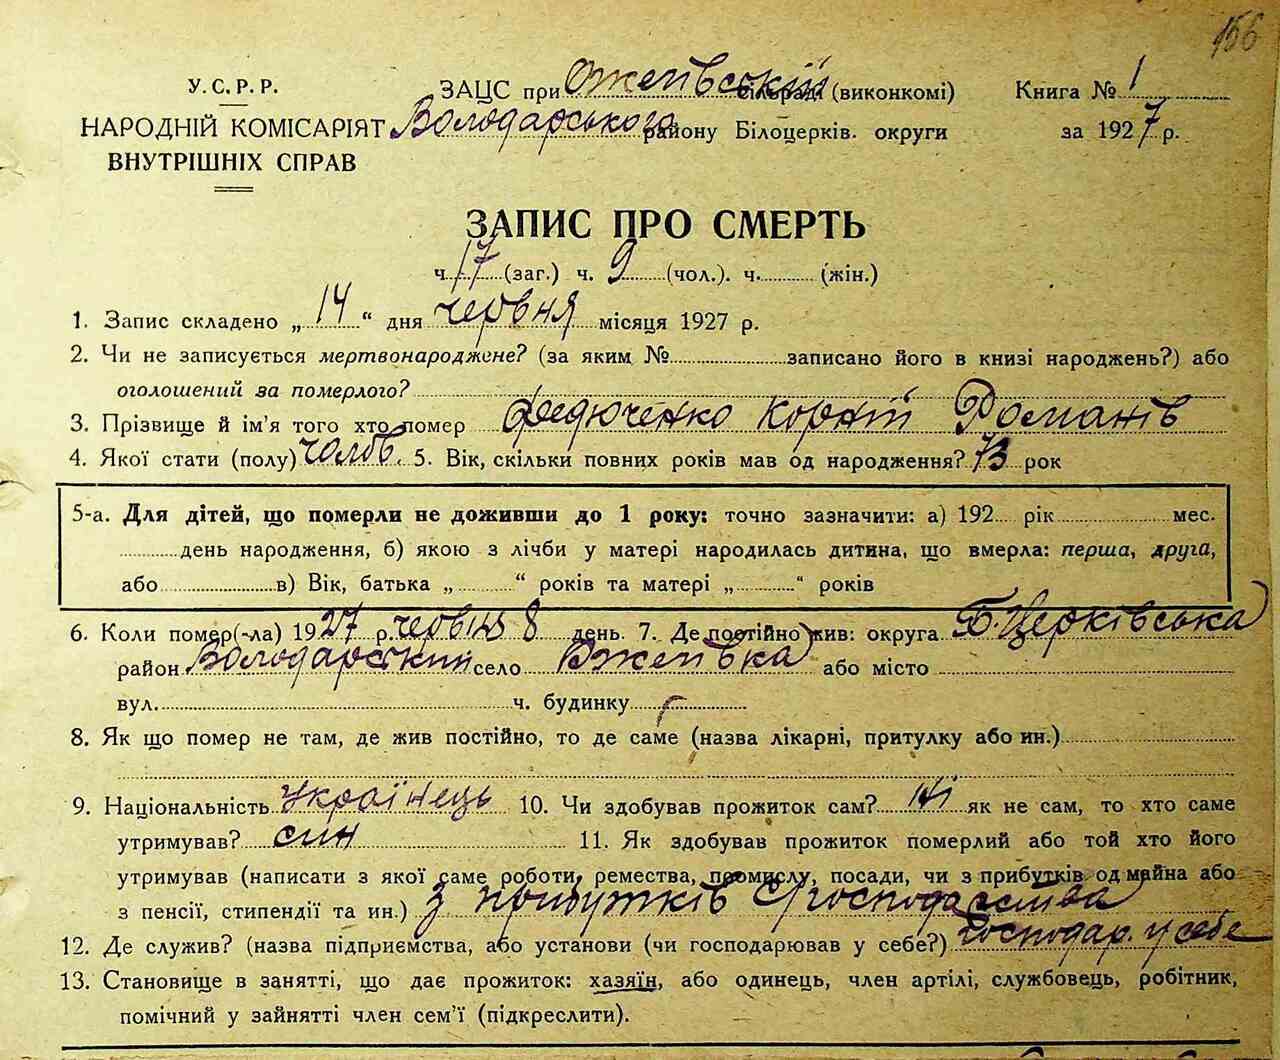 156
У.С.Р.Р. ЗАЦС при Ожегівській сільраді (виконкомі) Книга № 1
НАРОДНІЙ КОМІСАРІЯТ Володарського району Білоцерків. округи за 1927 р.
ВНУТРІШНІХ СПРАВ
ЗАПИС ПРО СМЕРТЬ
ч. 17 (заг.) ч. 9 (чол.). ч. (жін.)
1. Запис складено „14“ дня червня місяця 1927 р.
2. Чи не записується мертвонароджене? (за яким № записано його в книзі народжень?) або
оголошений за померлого?
3. Прізвище й ім'я того хто помер Федюченко Корній Романів
4. Якої стати (полу) чолов. 5. Вік, скільки повних років мав од народження? 73 рок
5-а. Для дітей, що померли не доживши до 1 року: точно зазначити: а) 192 рік мес.
день народження, б) якою з лічби у матері народилась дитина, що вмерла: перша, друга,
або в) Вік, батька „ “ років та матері „ “ років
6. Коли помер(-ла) 1927 р. червня 8 день. 7. Де постійно жив: округа Б. Церківська
район Володарський село Ожегівка або місто
вул. ч. будинку
8. Як що помер не там, де жив постійно, то де саме (назва лікарні, притулку або ин.)
9. Національність Українець 10. Чи здобував прожиток сам? ні як не сам, то хто саме
утримував? син 11. Як здобував прожиток померлий або той хто його
утримував (написати з якої саме роботи, ремества, промислу, посади, чи з прибутків од майна або
з пенсії, стипендії та ин.) З прибутків с/господарства
12. Де служив? (назва підприємства, або установи (чи господарював у себе?) господар. у себе
13. Становище в занятті, що дає прожиток: хазяїн, або одинець, член артілі, службовець, робітник,
помічний у зайнятті член сем'ї (підкреслити).